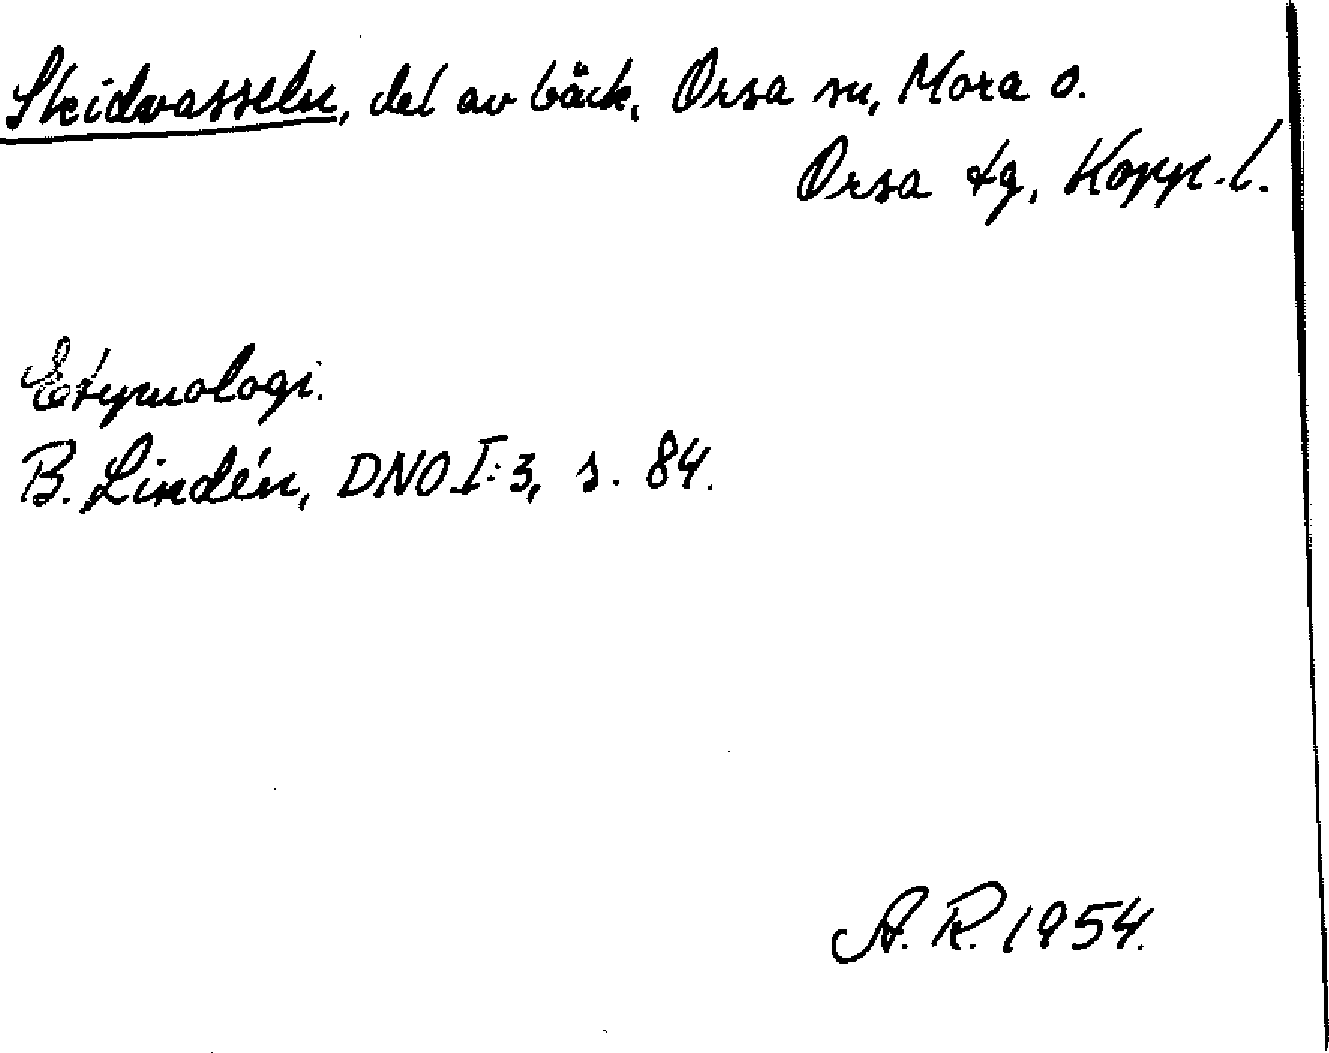 Skidvasseln, del av bäck, Orsa sn, Mora o.
Orsa tg, Kopp. l.
Etymologi.
B. Lindén, DNO I:3, s. 84.
A. R. 1954.